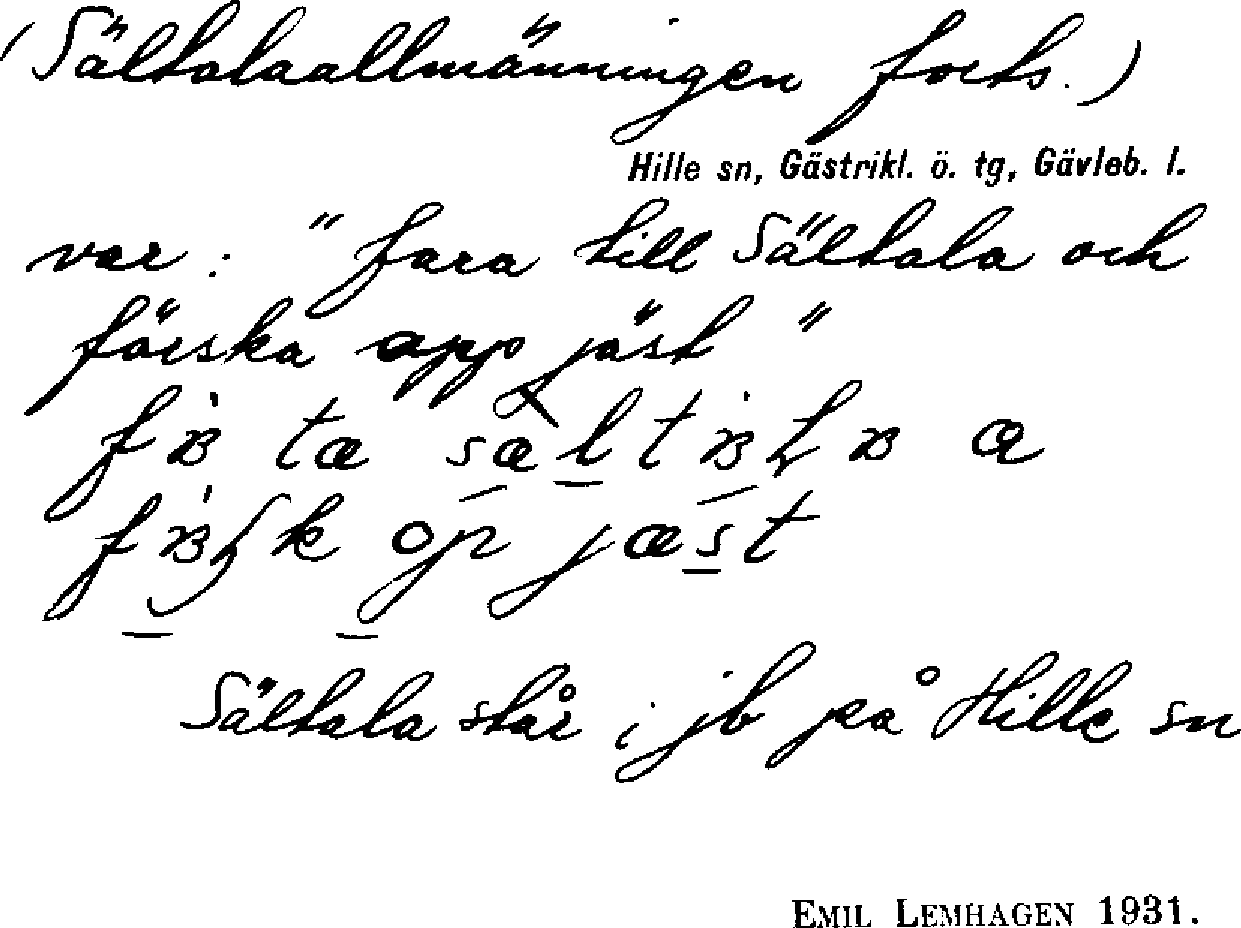 (Sältalaallmänningen forts.)
Hille sn, Gästrikl. ö. tg, Gävleb. l.
var: "fara till Sältala och
färska opp jäst"
ta a
op jæst
Sältala står i jb på Hille sn
EMIL LEMHAGEN 1931.